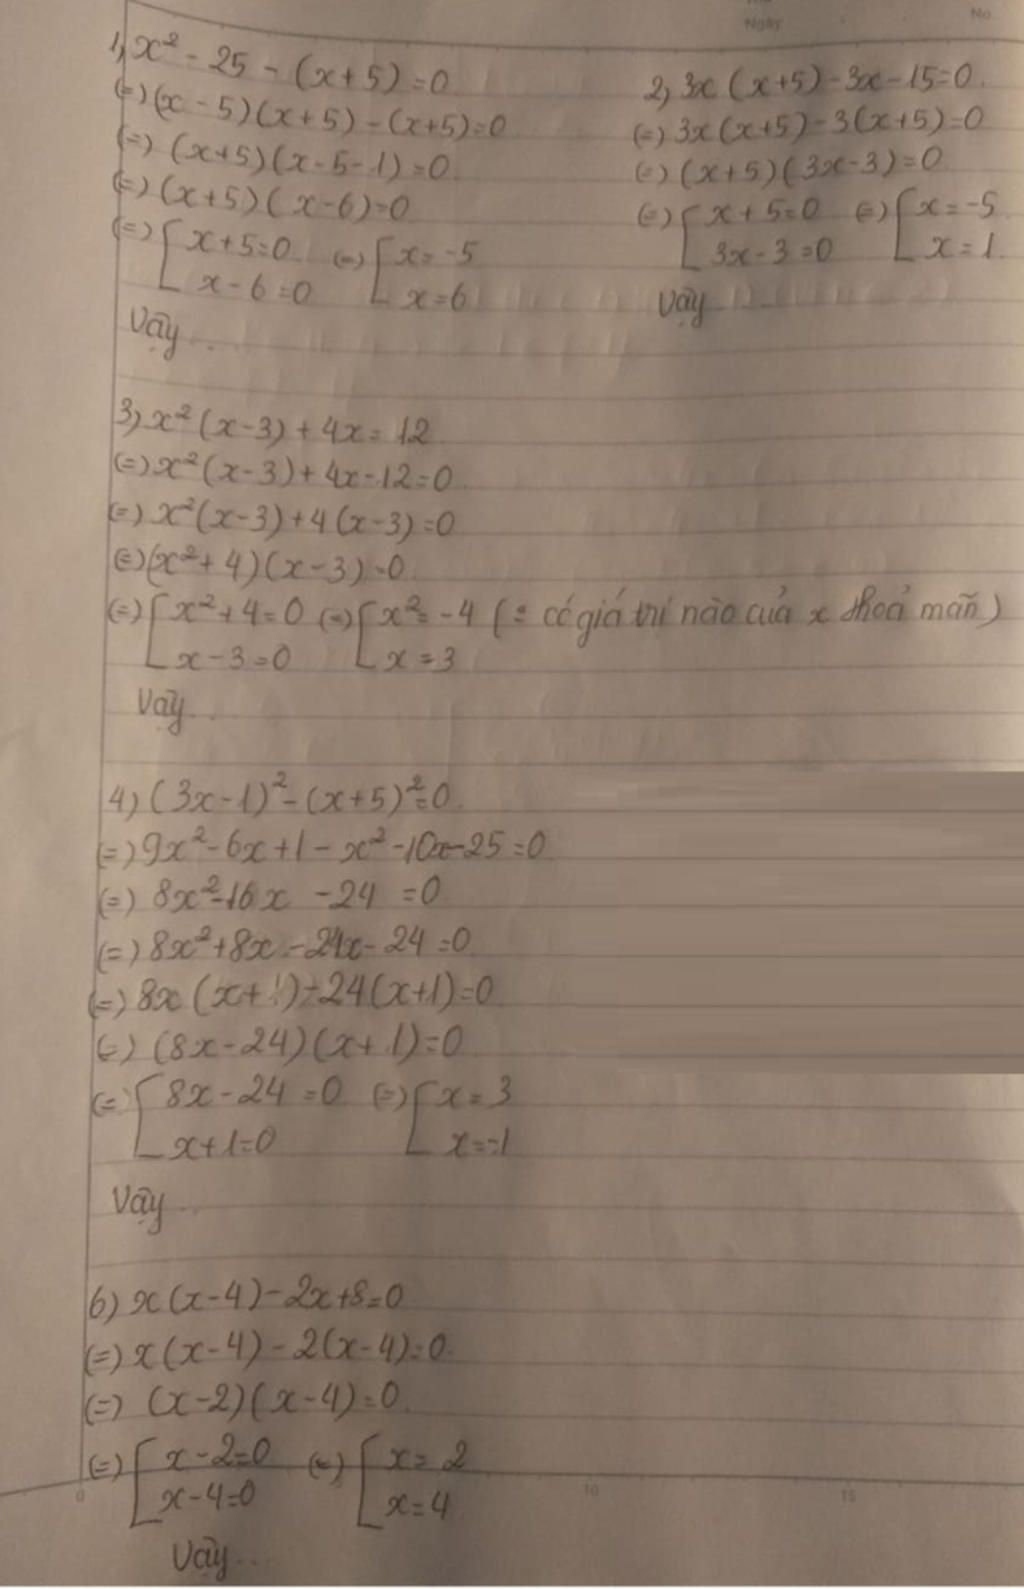 Ngày
No.
1, x² - 25 - (x+5) = 0
(=) (x - 5)(x+5) - (x+5)=0
(=) (x+5)(x-5-1) =0
(=) (x+5)(x-6)=0
(=) [ x+5=0 (=) [ x=-5
x-6=0 x=6
Vậy...
2, 3x(x+5) - 3x - 15=0.
(=) 3x(x+5) - 3(x+5)=0
(=) (x+5)(3x-3)=0.
(=) [ x+5=0 (=) [ x=-5
3x-3=0 x=1
Vậy...
3, x²(x-3) + 4x = 12
(=) x²(x-3) + 4x-12=0
(=) x²(x-3)+4(x-3)=0
(=) (x²+4)(x-3)=0
(=) [ x²+4=0 (=) [ x²=-4 (: có giá trị nào của x thoả mãn)
x-3=0 x=3
Vậy...
4) (3x-1)² - (x+5)²=0.
(=) 9x²-6x+1-x²-10x-25=0
(=) 8x²-16x -24 =0
(=) 8x²+8x-24x-24=0
(=) 8x(x+1)-24(x+1)=0
(=) (8x-24)(x+1)=0
(=) [ 8x-24=0 (=) [ x=3
x+1=0 x=-1
Vậy...
6) x(x-4)-2x+8=0
(=) x(x-4)-2(x-4)=0
(=) (x-2)(x-4)=0
(=) [ x-2=0 (=) [ x=2
x-4=0 x=4
0 10 15
Vậy...